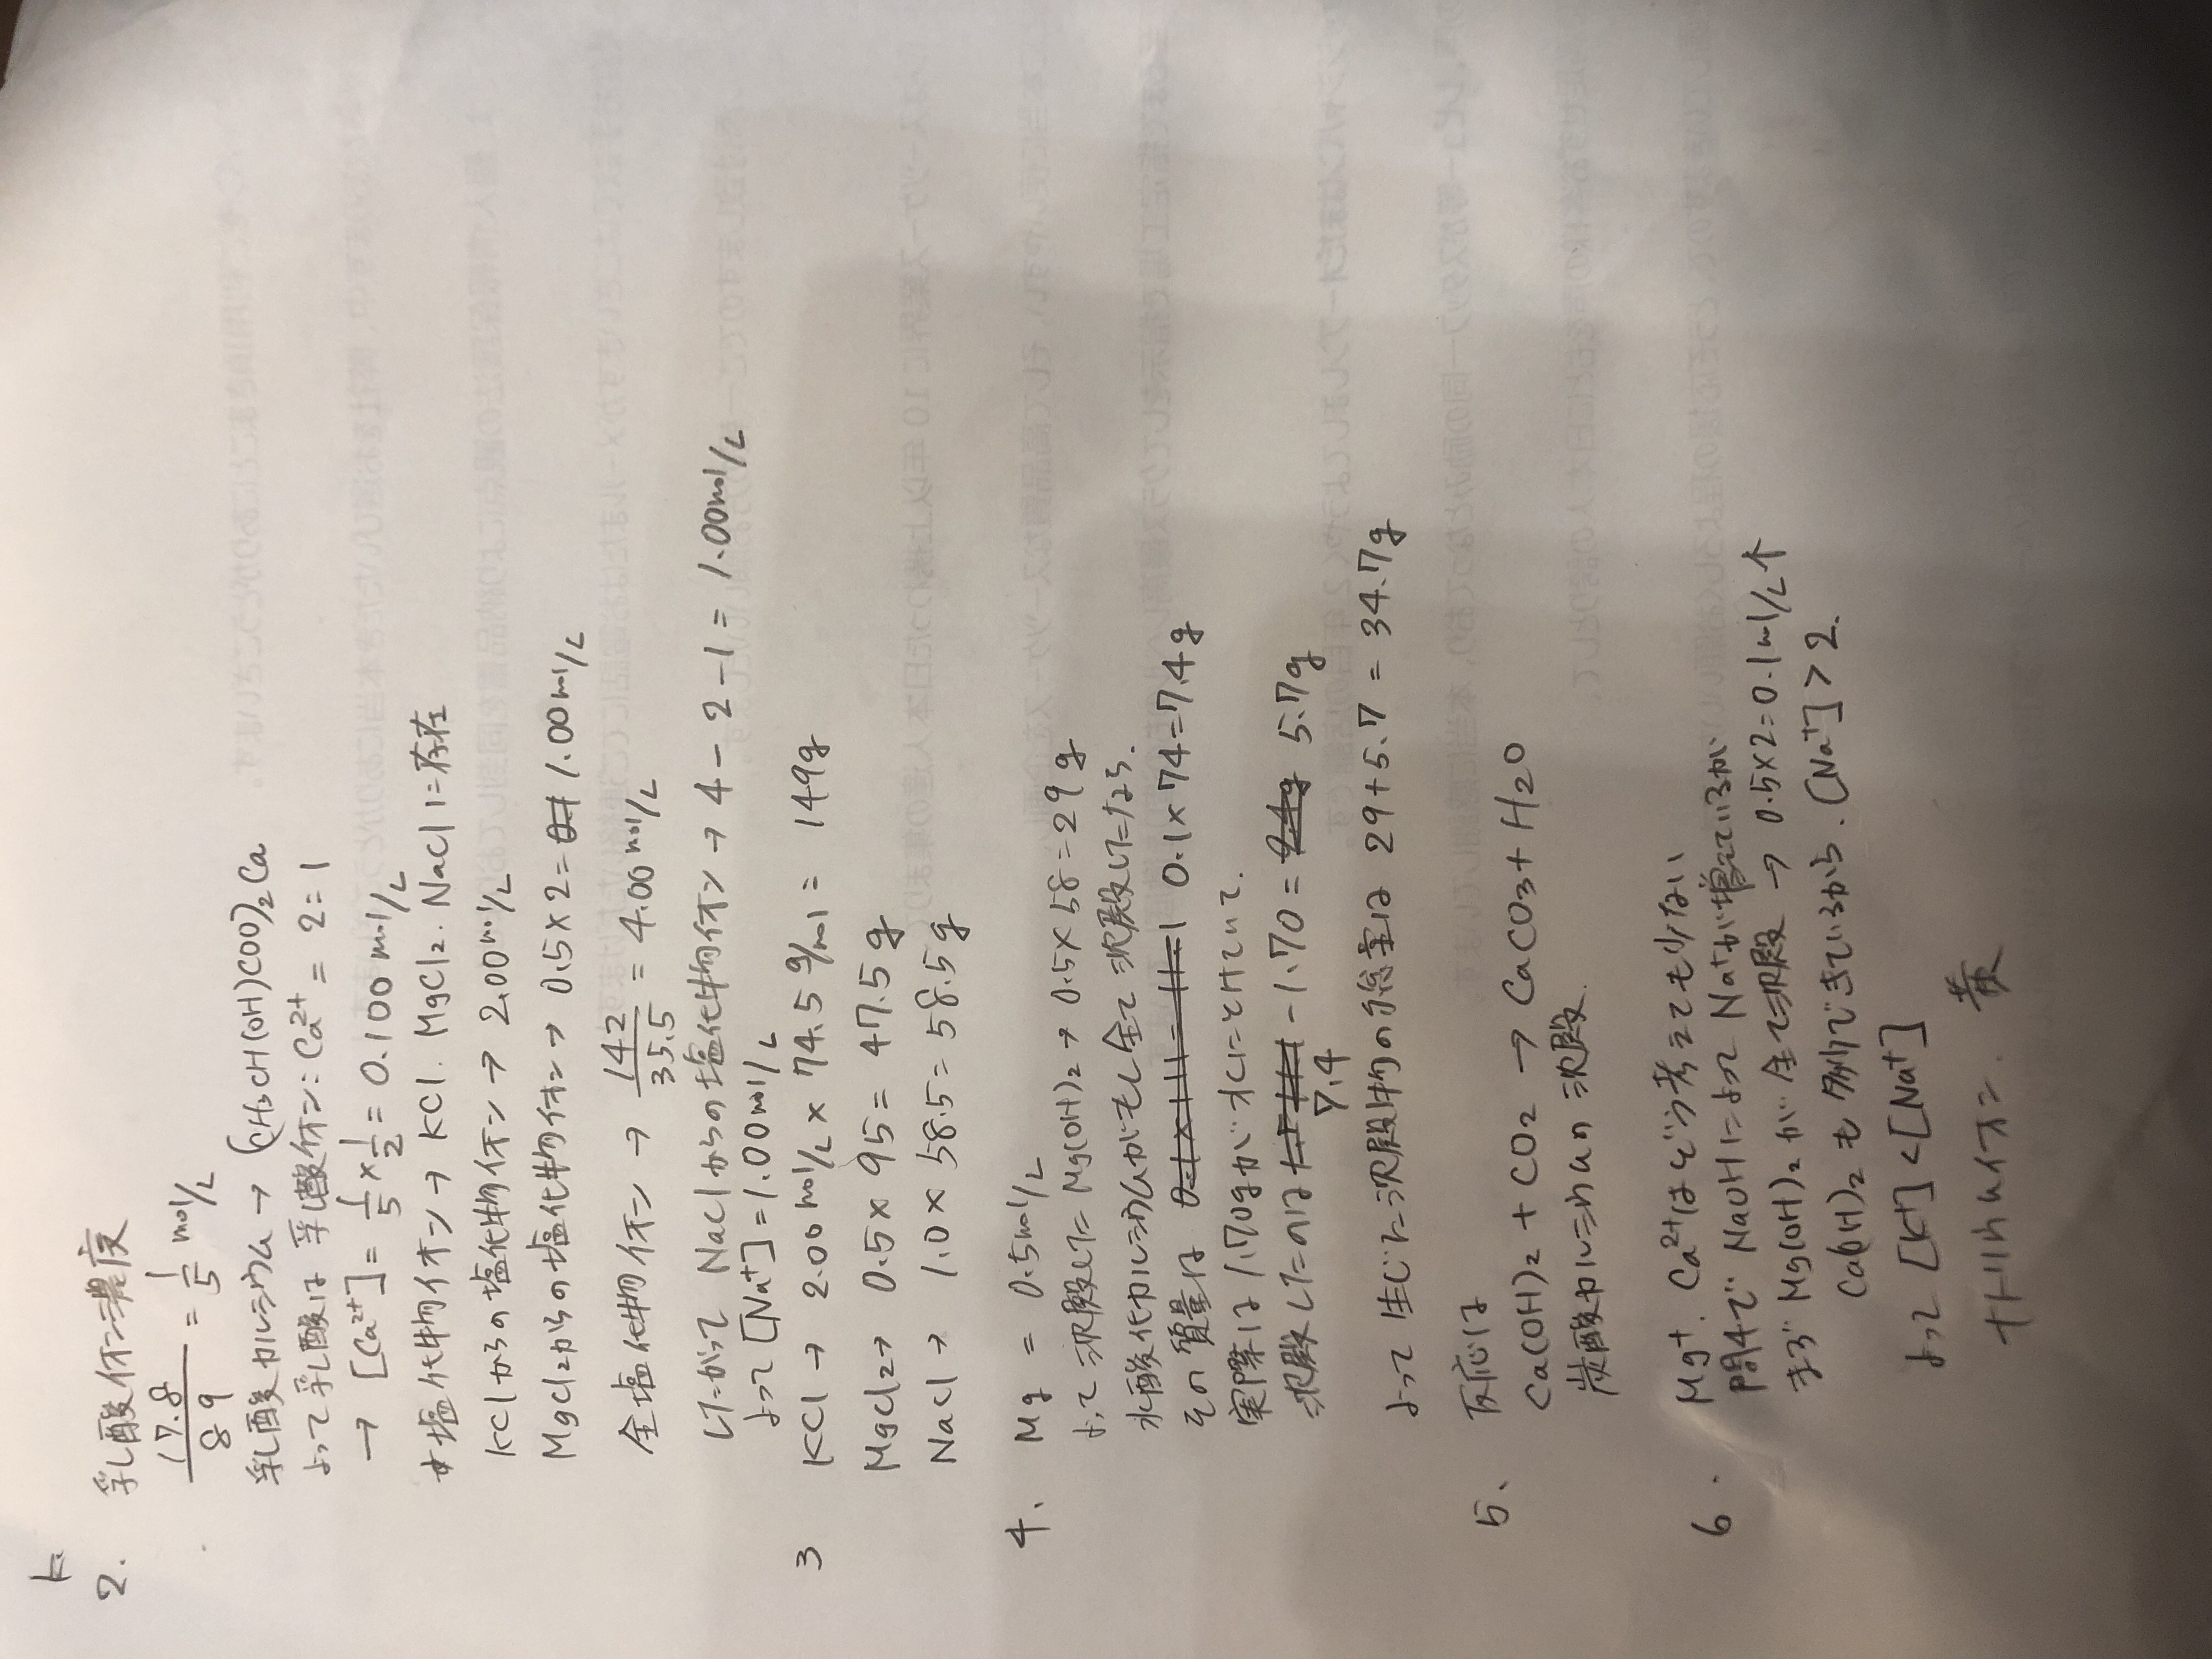 2. 乳酸イオン濃度
17.8/89 = 1/5 mol/L
乳酸カルシウム → (CH3CH(OH)COO)2Ca
よって乳酸は 乳酸イオン:Ca2+ = 2:1
→ [Ca2+] = 1/5 × 1/2 = 0.100 mol/L
*塩化物イオン → KCl. MgCl2. NaClに存在
KClからの塩化物イオン → 2.00 mol/L
MgCl2からの塩化物イオン → 0.5×2 = 1.00 mol/L
全塩化物イオン → 142/35.5 = 4.00 mol/L
したがって NaClからの塩化物イオン → 4-2-1 = 1.00 mol/L
よって [Na+] = 1.00 mol/L
3 KCl → 2.00 mol/L × 74.5 g/mol = 149g
MgCl2 → 0.5 × 95 = 47.5 g
NaCl → 1.0 × 58.5 = 58.5 g
4. Mg = 0.5mol/L
よって沈殿した Mg(OH)2 → 0.5×58=29g
水酸化カルシウムがもし全て沈殿したなら.
その質量は 0.1×74=7.4g
実際は 1.70gが水にとけていて.
沈殿したのは 7.4 - 1.70 = 5.7g
よって 生じた沈殿物の総量は 29+5.7 = 34.7g
5、 反応は
Ca(OH)2 + CO2 → CaCO3 + H2O
炭酸カルシウムの沈殿.
6. Mg+. Ca2+はどう考えても少ない
問4で NaOHによって Na+が増えているが
まず Mg(OH)2が 全て沈殿 → 0.5×2=0.1mol/L↑
Ca(OH)2も 多少できているから. [Na+] > 2.
よって [K+] < [Na+]
ナトリウムイオン. 黄